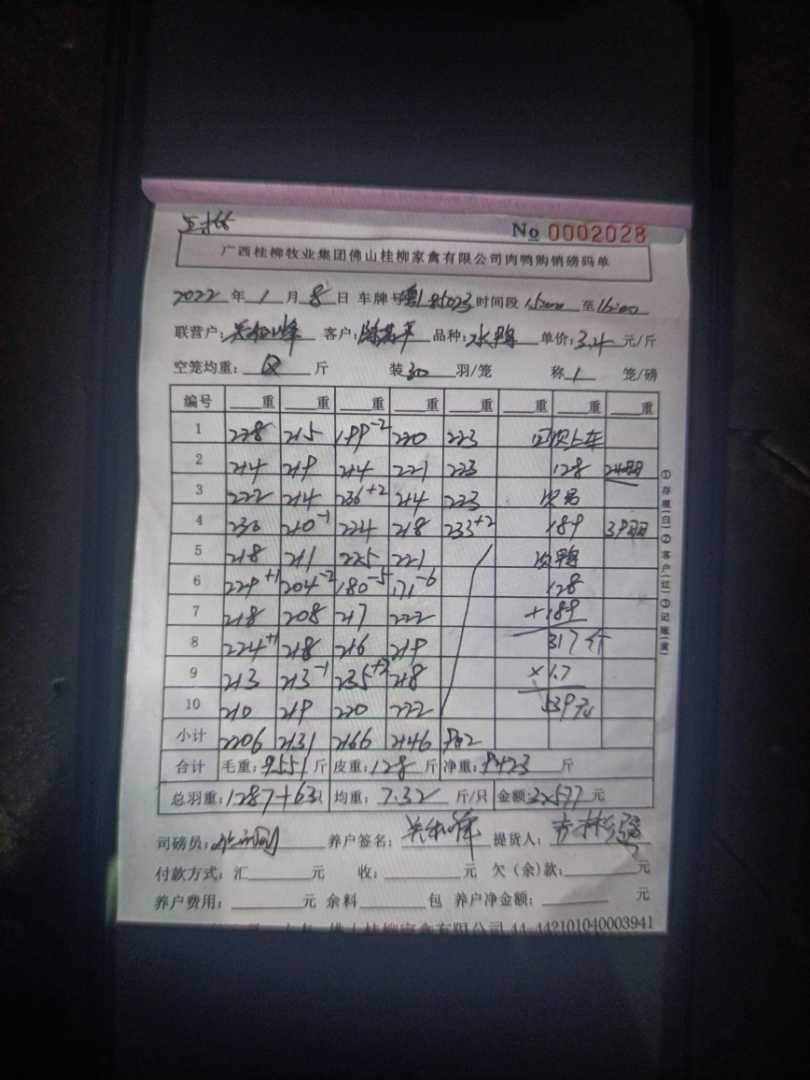 No 0002028
广西桂柳牧业集团佛山桂柳家禽有限公司肉鸭购销磅码单
2022 年 1 月 8 日 车牌号 85023 时间段 15:00 至 16:00
联营户: 客户: 品种:水鸭 单价:3.4 元/斤
空笼均重: 斤 装30 羽/笼 称 1 笼/磅
编号 重 重 重 重 重 重 重 重
1 228 215 199-2 220 223 上车
2 214 219 214 221 223 128 24羽
3 222 214 236+2 214 223 次马
4 230 210-1 224 218 233+2 189 39羽
5 218 211 225 221 次鸭
6 229+1 204-2 180-5 171-6 128
7 218 208 217 222 +189
8 224+1 218 216 219 317斤
9 213 213-1 235+2 218 ×1.7
10 210 219 220 222 539元
小计 2206 2131 2166 2146 902
合计 毛重:9551斤 皮重:128斤 净重:9423斤
总羽重:1287+63 均重:7.32 斤/只 金额:32577元
司磅员: 养户签名: 提货人:
付款方式:汇 元 收: 元 欠(余)款: 元
养户费用: 元 余料 包 养户净金额: 元
佛山桂柳家禽有限公司 44-442101040003941
①存根(白)②客户(红)③记账(黄)